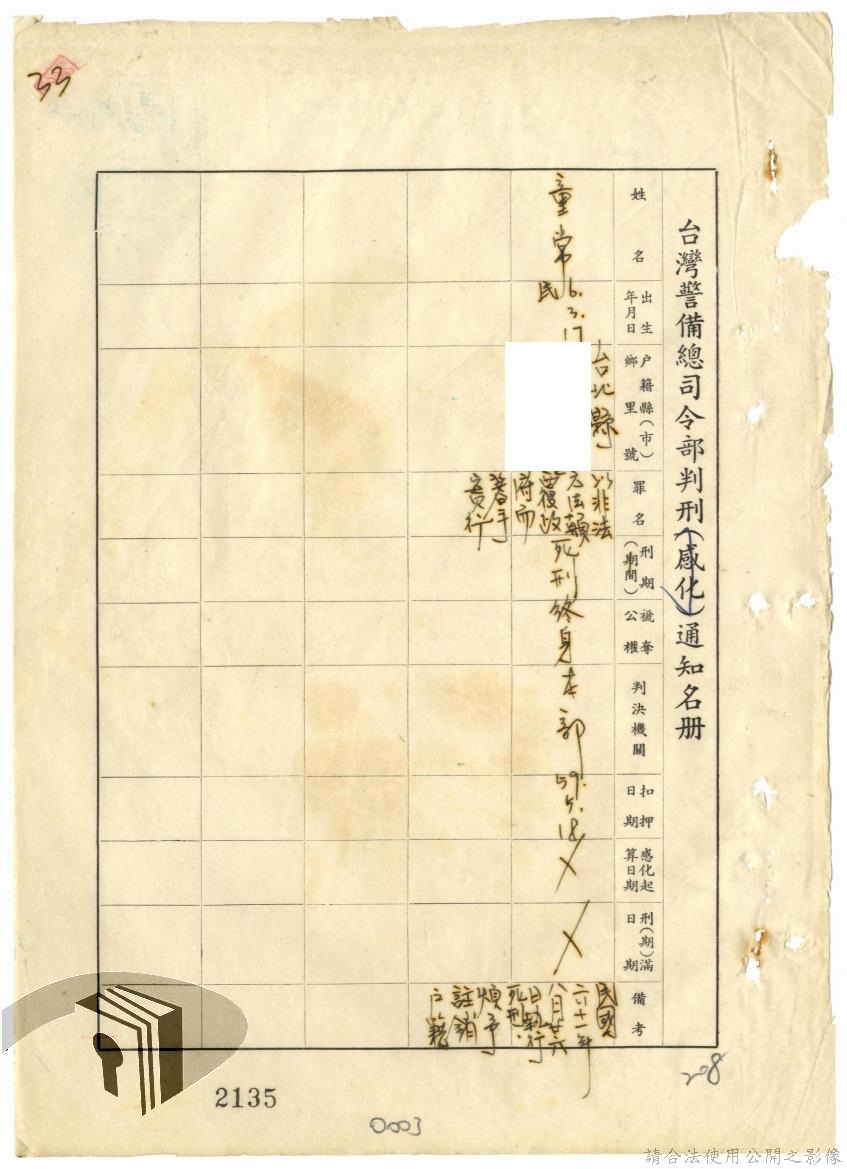 33
台灣警備總司令部判刑(感化)通知名册
姓名
出生
年月日
户籍縣(市)
鄉里號
罪名
刑期
(期間)
褫奪
公權
判決機關
扣押
日期
感化起
算日期
刑(期)滿
日期
備考
童常
民16.3.17
台北縣
以非法
方法顛
覆政
府而
著手
實行
死刑
終身
本部
59.5.18
民國
六十一年
八月廿六
日執行
死刑.
煩予
註銷
户籍
208
2135
0003
請合法使用公開之影像